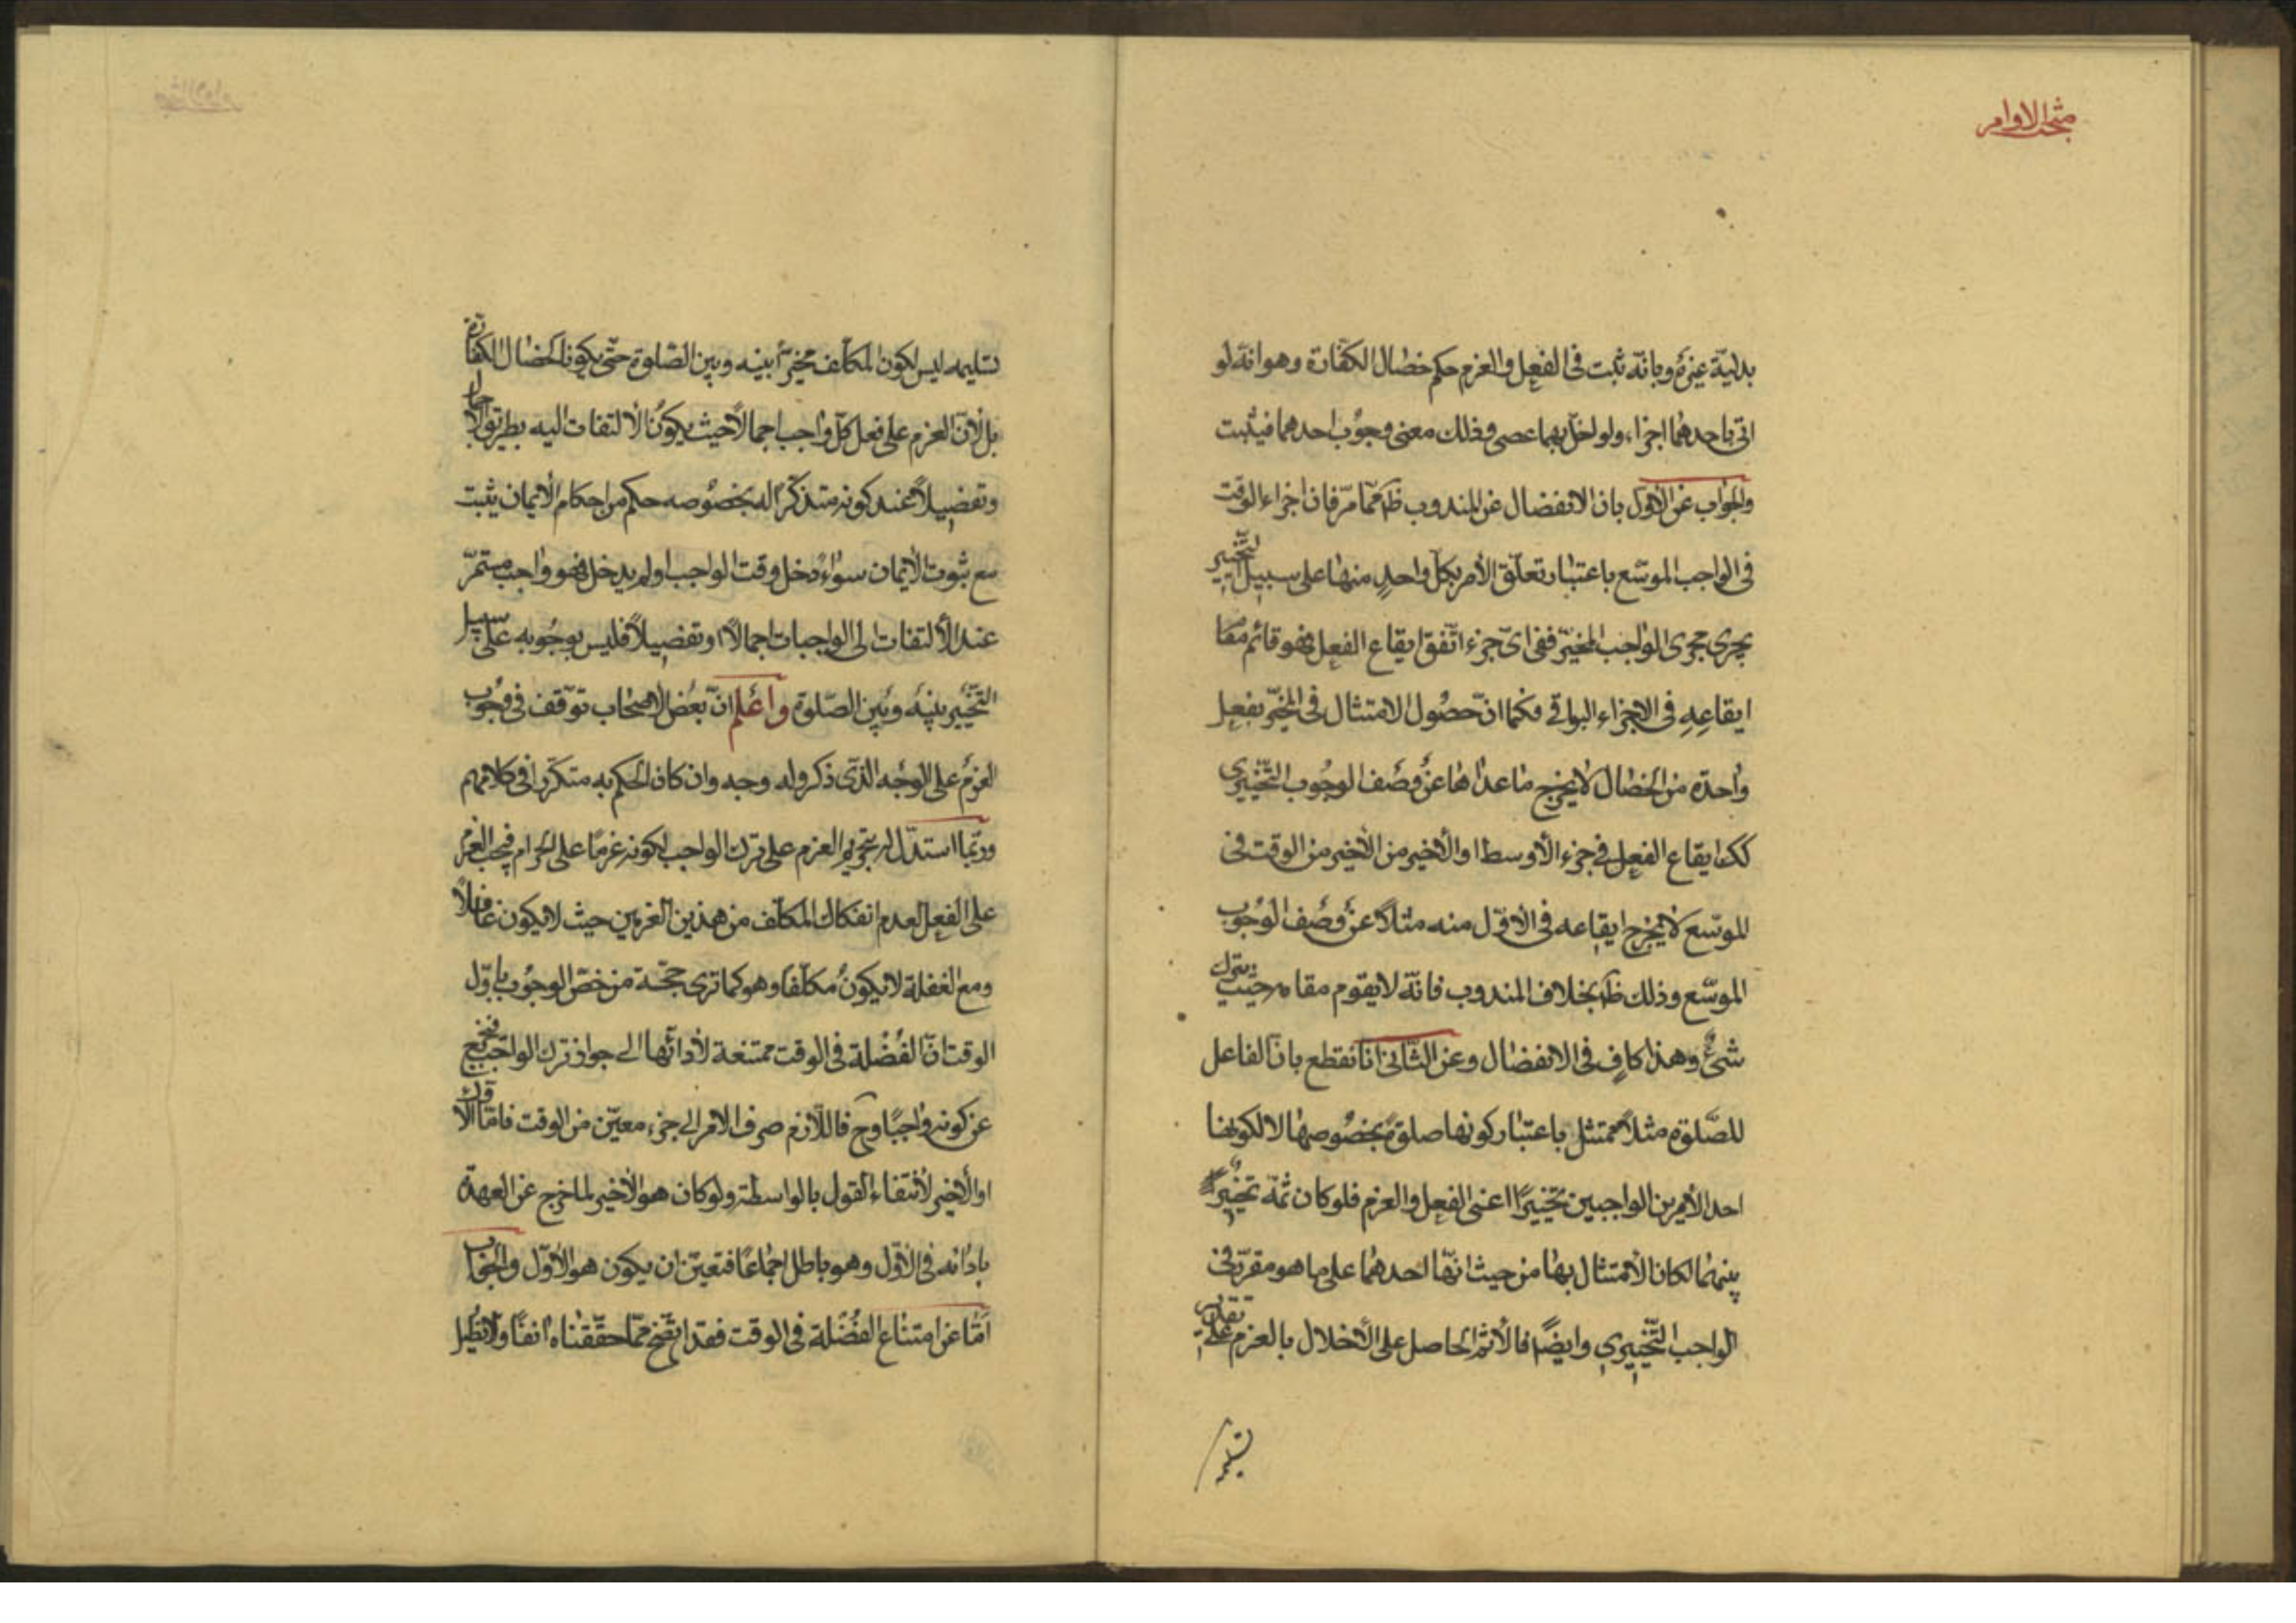 مبحث الاوامر
بدليّة غيره وبانّه ثبت فى الفعل والعزم حكم خصال الكفّارة وهو انّه لو
اتى باحدهما اجزاء ولو اخلّ بهما عصى وذلك معنى وجوب احدهما فيثبت
والجواب عن الاوّل بان الانفصال عن المندوب ظ ممّا مرّ فان اجزاء الوقت
فى الواجب الموسّع باعتبار تعلّق الأمر بكلّ واحدٍ منها على سبيل التّخيير
يجرى مجرى الواجب المخيّر ففى اىّ جزء اتّفق ايقاع الفعل فهو قائم مقام
ايقاعِهِ فى الاجزاء البواقى فكما انّ حصُول الامتثال فى المخيّر بفعل
واحدة من الخصال لا يخرج ما عداها عن وصف الوجوب التّخييرى
كك ايقاع الفعل فى جزء الأوسط او الأخير من الأخير من الوقت فى
الموسّع لا يخرج ايقاعه فى الأوّل منه مثلاً عن وصف الوجوب
الموسّع وذلك ظ بخلاف المندوب فانّه لا يقوم مقامه حيث يترك
شئ وهذا كافٍ فى الانفصال وعن الثّانى انّا نقطع بانّ الفاعل
للصّلوة مثلاً ممتثل باعتبار كونها صلوة بخصُوصها لا لكونها
احد الأمرين الواجبين تخييرًا اعنى الفعل والعزم فلو كان ثمّة تخييرٌ
بينهما لكان الأمتثال بها من حيث انّها احدهما على ما هو مقرّر فى
الواجب التّخييرى وايضًا فالأثم الحاصل على الأخلال بالعزم على تقدير
تسليمه
تسليمه ليس لكون المكلّف مخيّرًا بينه وبين الصّلوة حتّى يكونا كخصال الكفّارة
بل لأنّ العزم على فعل كلّ واجب اجمالاً حيث يكون الألتفات اليه بطريق الاجمال
وتفصيلاً عند كونه متذكّرًا له بخصُوصه حكم من احكام الأيمان يثبت
مع ثبوت الأيمان سواء دخل وقت الواجب او لم يدخل فهو واجب مستمرّ
عند الألتفات الى الواجبات اجمالاً او تفصيلاً فليس بوجُوبه على سبيل
التّخيير بينه وبين الصّلوة واعلم انّ بعض الاصحاب توقّف فى وجُوب
العزم على الوجه الذى ذكر وله وجه وان كان الحكم به متكرّرًا فى كلامهم
وربّما استدلّ له بتحريم العزم على ترك الواجب لكونه عزمًا على الحرام فيجب العزم
على الفعل لعدم انفكاك المكلّف من هذين العزمين حيث لا يكون غافلاً
ومع الغفلة لا يكون مكلّفًا وهو كما ترى حجّة من خصّ الوجوب باوّل
الوقت انّ الفضلة فى الوقت ممتنعة لأدائها الى جواز ترك الواجب فيخرج
عن كونه واجبًا وح فاللّازم صرف الامر الى جزء معيّن من الوقت فامّا الأوّل
او الأخير لأنتفاء القول بالواسطة ولو كان هو الأخير لما خرج عن العهدة
بادائه فى الأوّل وهو باطل اجماعًا فتعيّن ان يكون هو الأوّل والجواب
امّا عن امتناع الفضلة فى الوقت فقد اتّضح ممّا حقّقناه انفًا ولا نطيل